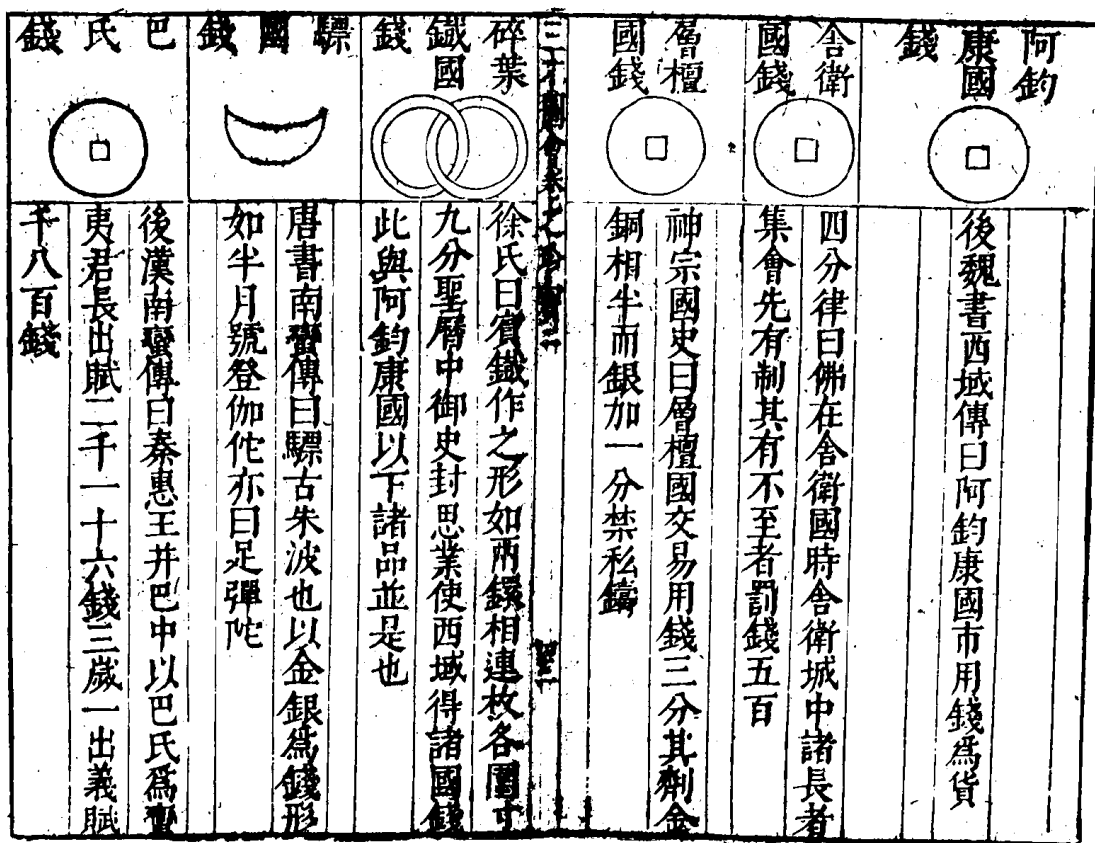 阿鈞
康國
錢
後魏書西域傳曰阿鈞康國市用錢爲貨
舎衛
國錢
四分律曰佛在舎衛國時舎衛城中諸長者
集會先有制其有不至者罰錢五百
層檀
國錢
神宗國史曰層檀國交易用錢三分其劑金
銅相半而銀加一分禁私鑄
三才圖會
碎葉
鐡國
錢
徐氏曰賓鐡作之形如兩鐶相連枚各圍寸
九分聖曆中御史封思業使西域得諸國錢
此與阿鈞康國以下諸品並是也
驃
國
錢
唐書南蠻傳曰驃古朱波也以金銀爲錢形
如半月號登伽佗亦曰足彈陀
巴
氏
錢
後漢南蠻傳曰秦惠王并巴中以巴氏爲蠻
夷君長出賦二千一十六錢三歲一出義賦
千八百錢